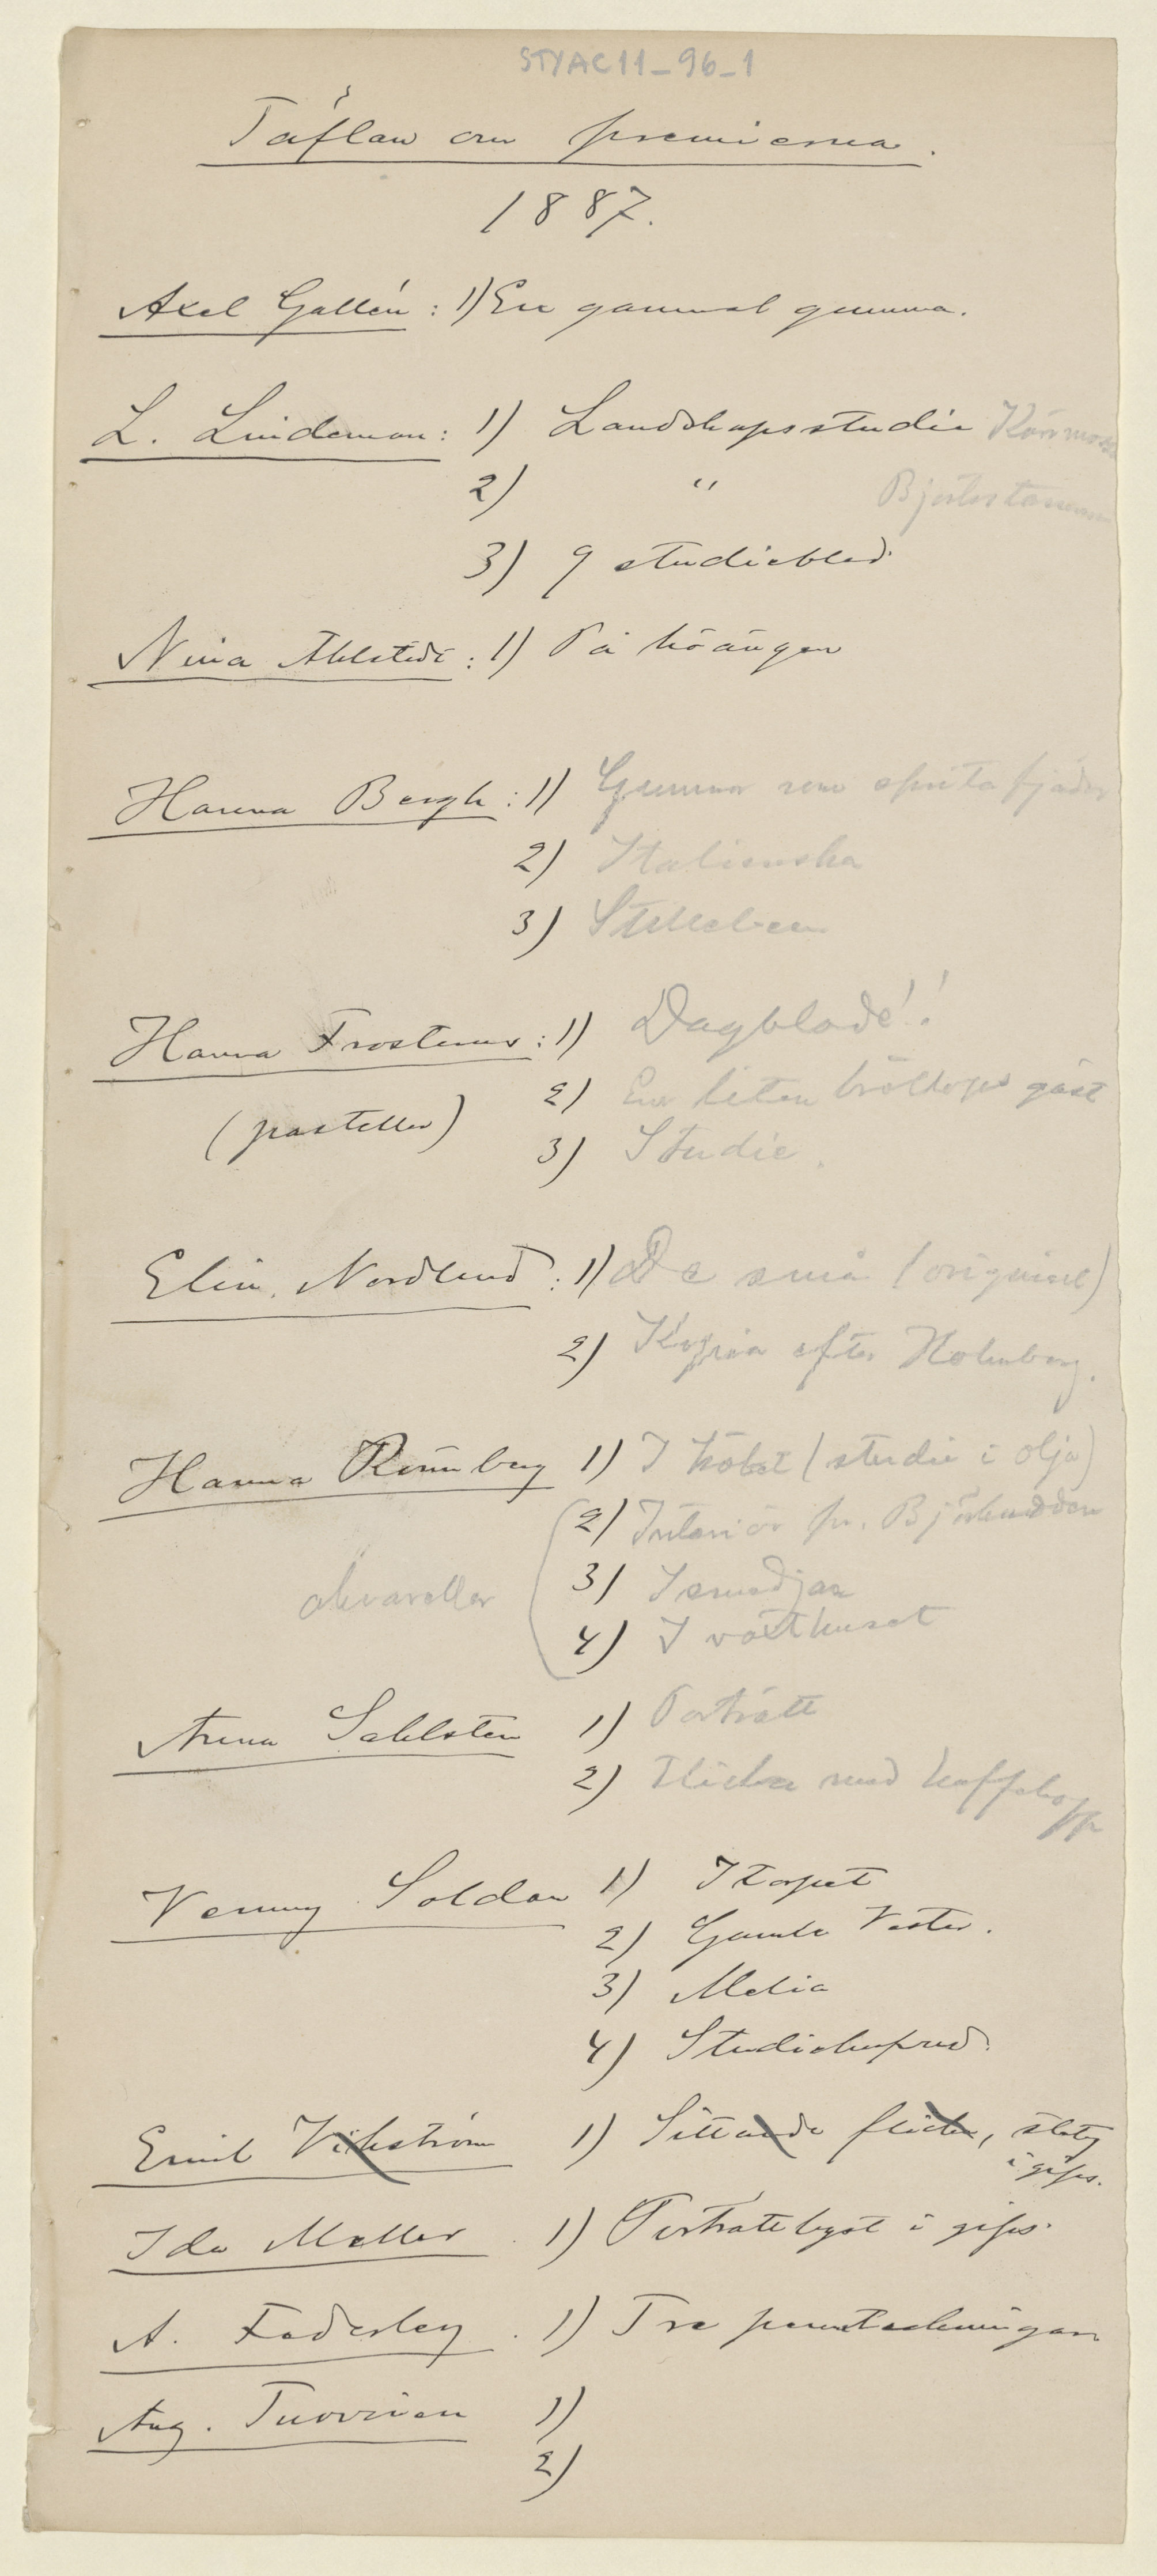 STYAC11_96_1
Täflan om premierna.
1887.
Axel Gallén: 1) En gammal gumma.
L. Lindeman: 1) Landskapsstudie
2) "
3) 9 studieblad
Nina Ahlstedt: 1) På höängen
Hanna Bergh: 1) Gummor som sprita fjäder
2) Italienska
3) Stilleben
Hanna Frosterus: 1) Dagblade'!
2) En liten bröllops gäst
(pasteller)
3) Studie.
Elin Nordlund: 1) De små (original)
2) Kopia efter Holmberg.
Hanna Rönnberg 1) I köket (studie i olja)
2) Interiör fr. Björkudden
akvareller 3) I smedjan
4) I växthuset
Anna Sahlsten 1) Porträtt
2) Flicka med kaffekopp
Venny Soldan 1) I torpet
2) Gamla Vester.
3) Melia
4) Studiehufvud.
Emil Vikström 1) Sittande flicka, staty
i gips.
Ida Moller 1) Porträttbyst i gips.
A. Federley. 1) Tre penntekningar
Aug. Tuovinen 1)
2)